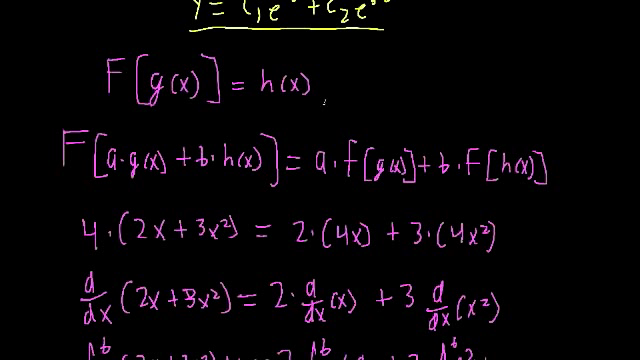 y = c₁e + c₂e
F[g(x)] = h(x)
F[a·g(x) + b·h(x)] = a·f[g(x)] + b·F[h(x)]
4·(2x + 3x²) = 2·(4x) + 3·(4x²)
d/dx (2x + 3x²) = 2·d/dx (x) + 3 d/dx (x²)